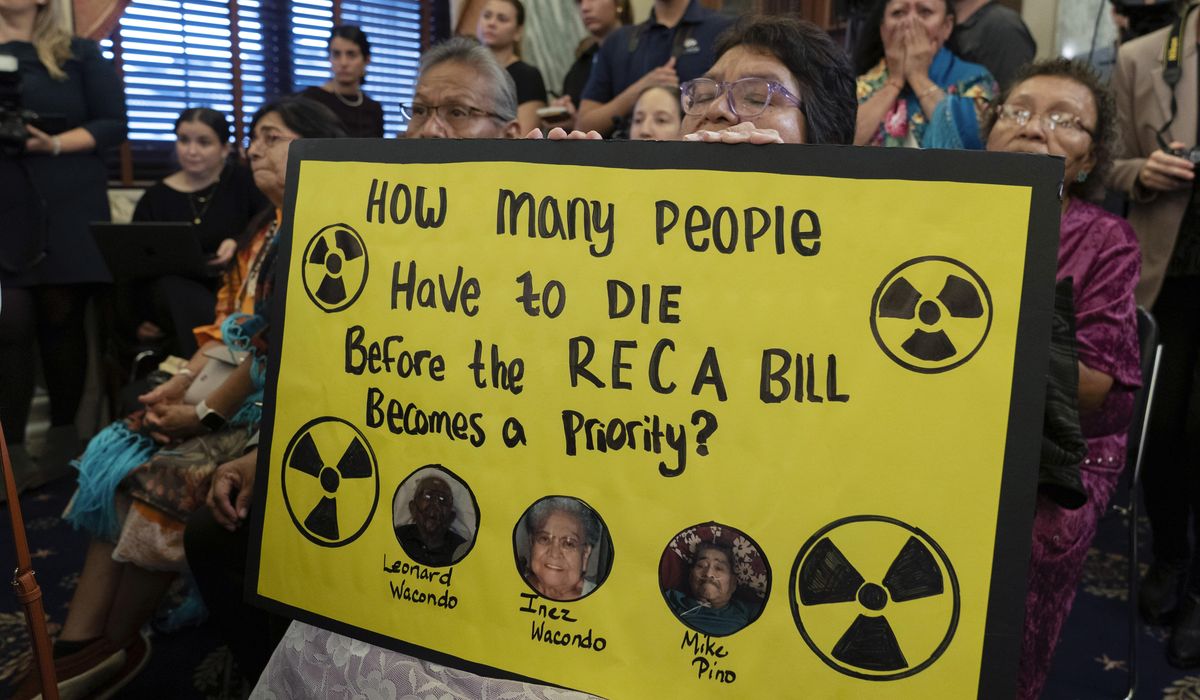 How many people
Have to DIE
Before the RECA BILL
Becomes a Priority?
Leonard
Wacondo
Inez
Wacondo
Mike
Pino